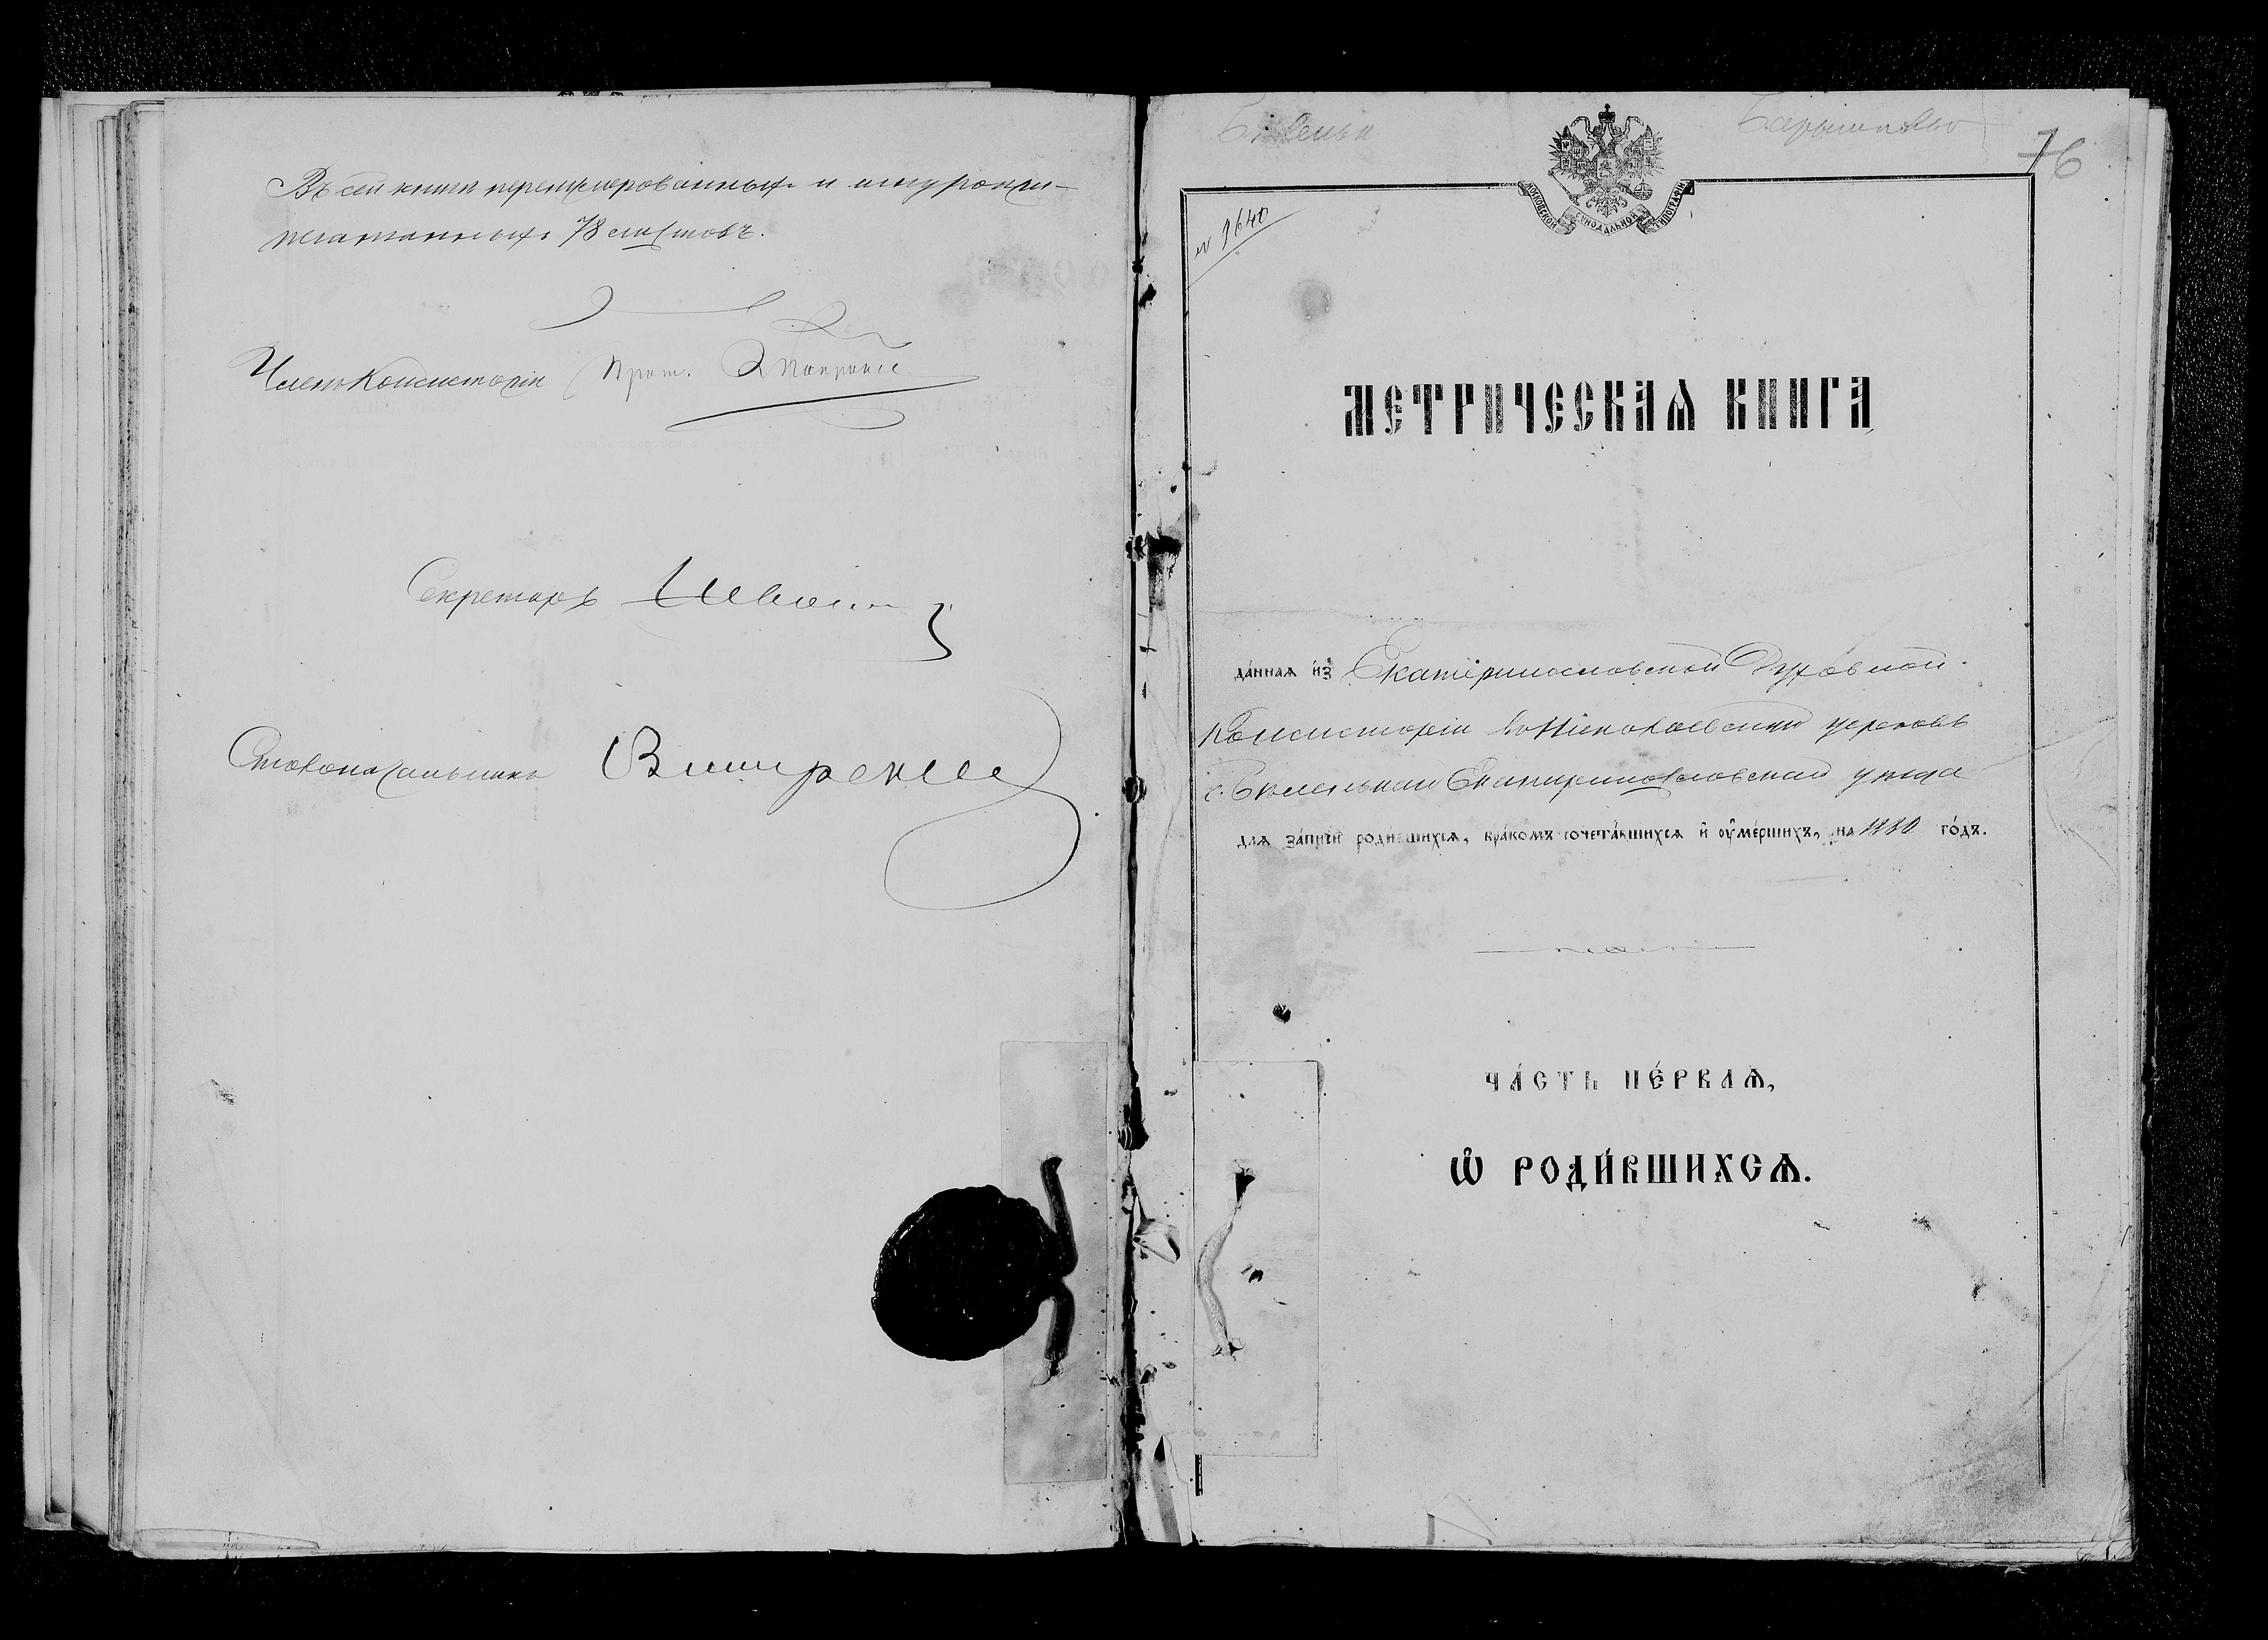 Въ сей книгѣ перенумерованныхъ и шнуроприпечатанныхъ 78 листовъ.
Членъ Консисторіи Прот.
Секретарь
Столоначальникъ
76
МОСКОВСКОЙ СѴНОДАЛЬНОЙ ТИПОГРАФІИ
№ 9640
МЕТРИЧЕСКАѦ КНИГА
да́ннаѧ и́з̾ Екатеринославской Духовной
Консисторіи въ Николаевскую церковь
с. Екатеринославскаго уѣзда
длѧ за́писи роди́вшихсѧ, бра́комъ сочета́вшихсѧ и҆ оу҆ме́ршихъ, на 1880 го́дъ.
ЧА́СТЬ ПЕ́РВАѦ,
Ѽ РОДИ́ВШИХСѦ.